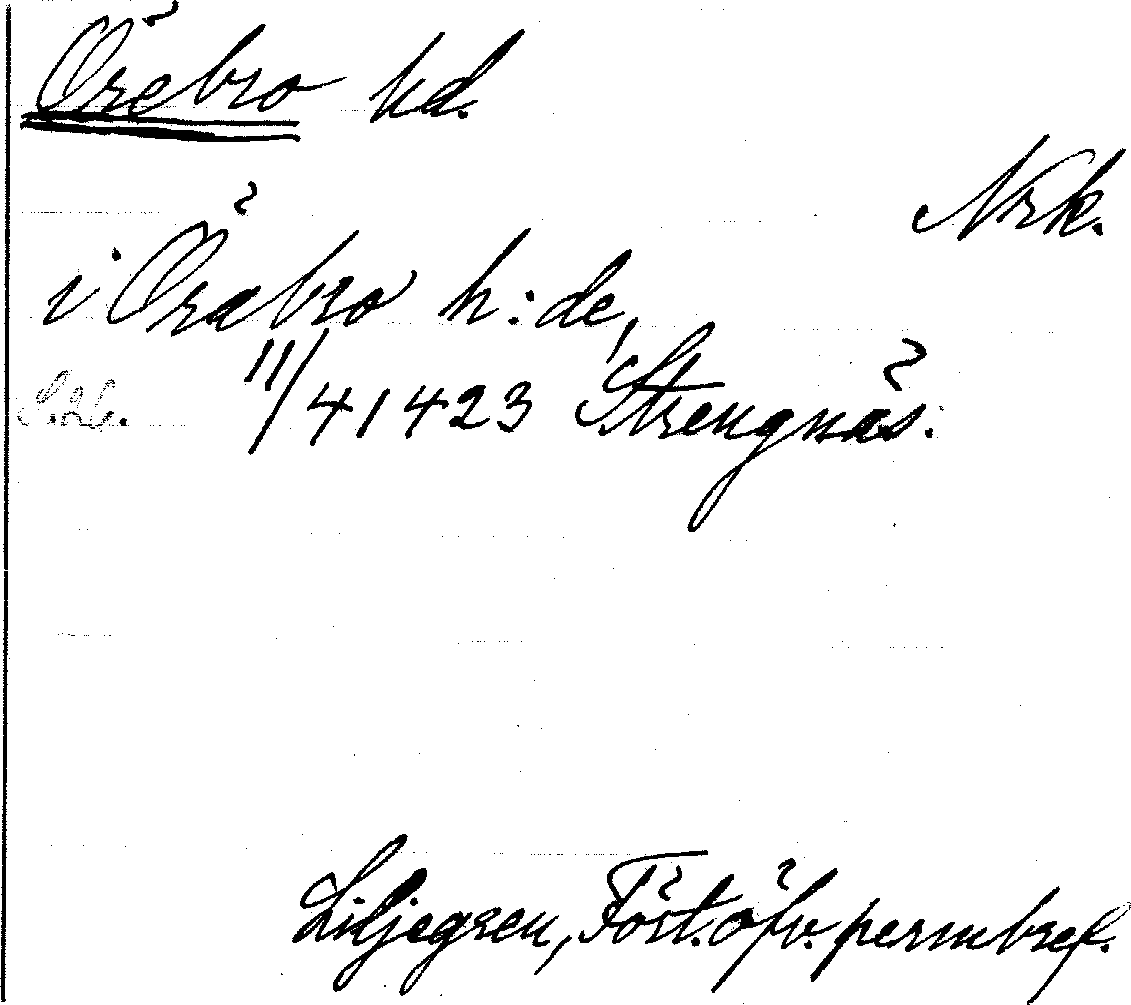 Örebro hd.
Nrk.
i Örabro h:de,
11/4 1423 Strengnäs.
Liljegren, Fört. öfv. permbref.